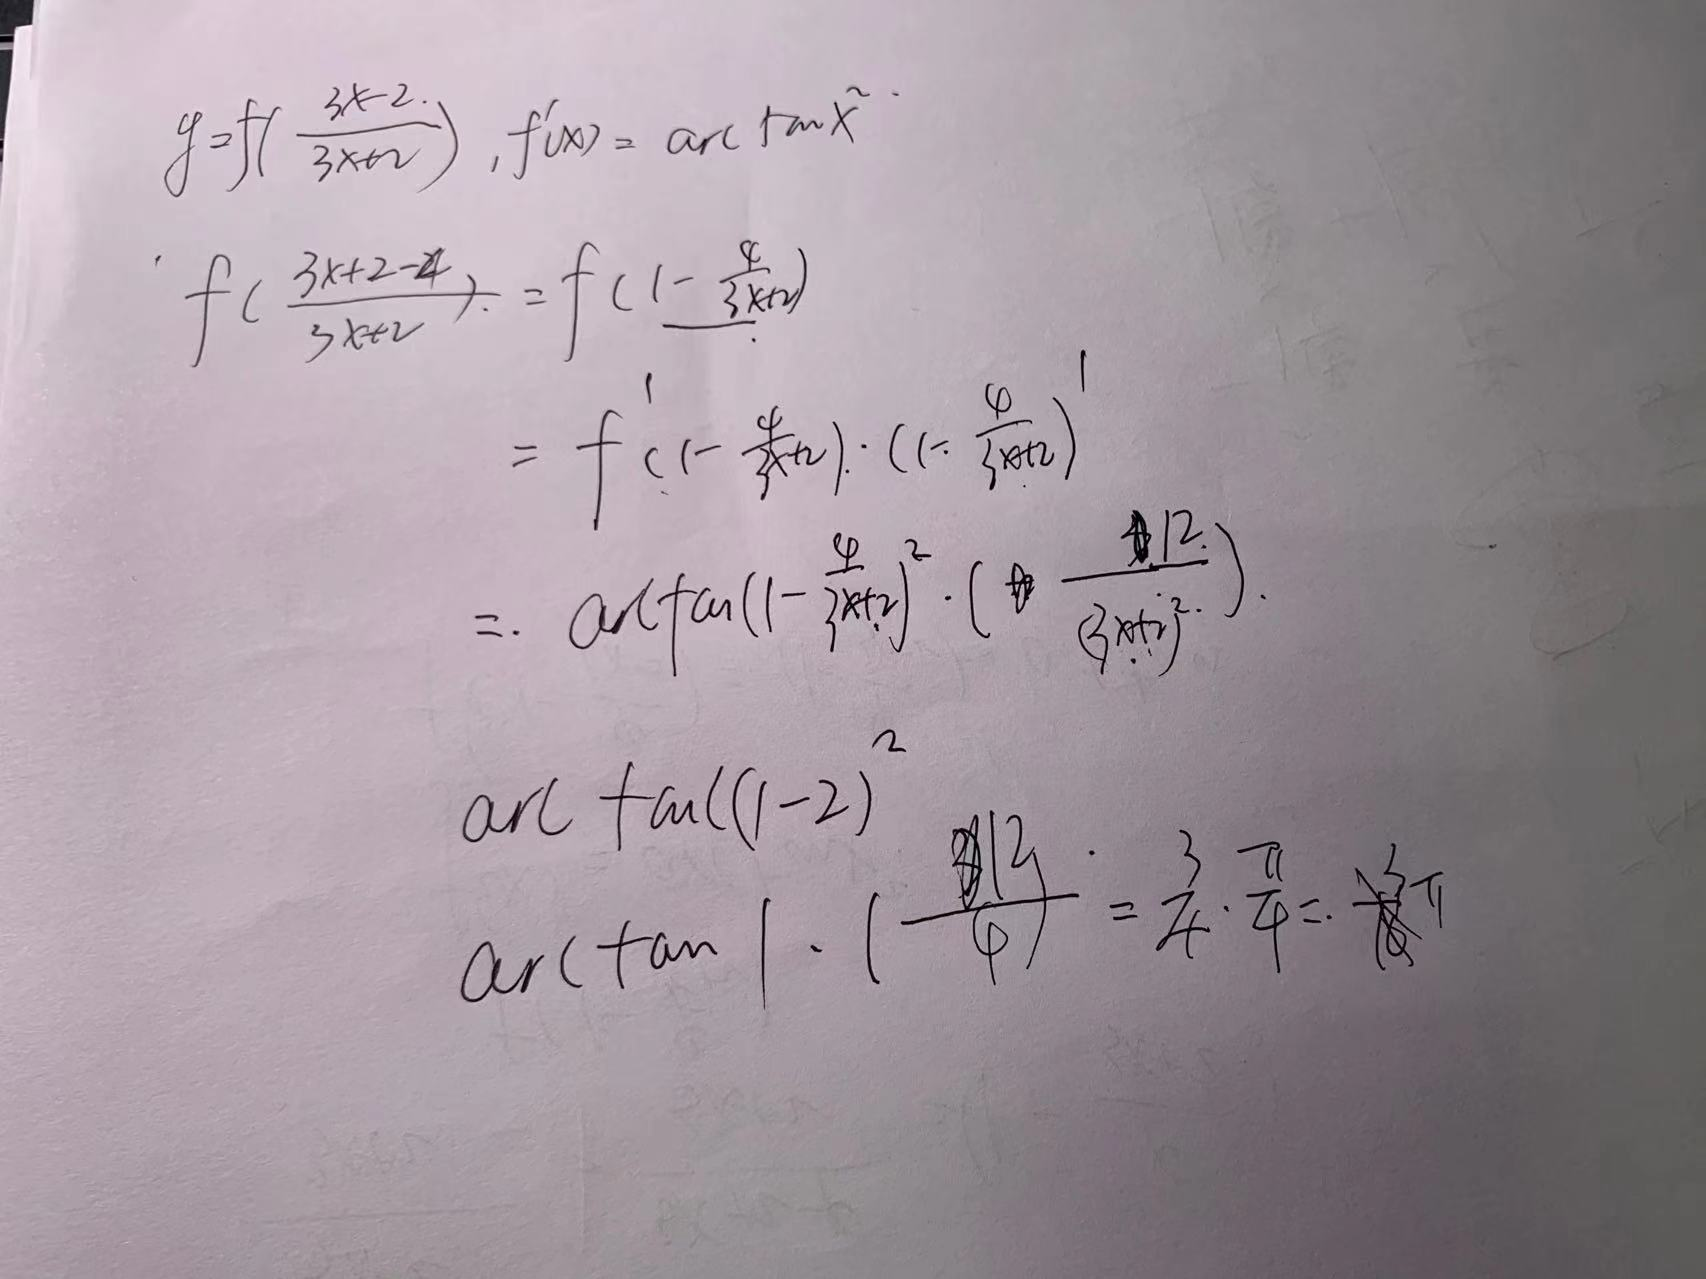 y=f(\frac{3x-2}{3x+2}), f'(x) = arc tan x^2
f(\frac{3x+2-4}{3x+2}) = f(1-\frac{4}{3x+2})
= f'(1-\frac{4}{3x+2})·(1-\frac{4}{3x+2})'
= arctan(1-\frac{4}{3x+2})^2·(\frac{12}{(3x+2)^2}).
arc tan((1-2)^2
arctan 1·(\frac{12}{4}) = \frac{3}{4}·\frac{π}{4} = π